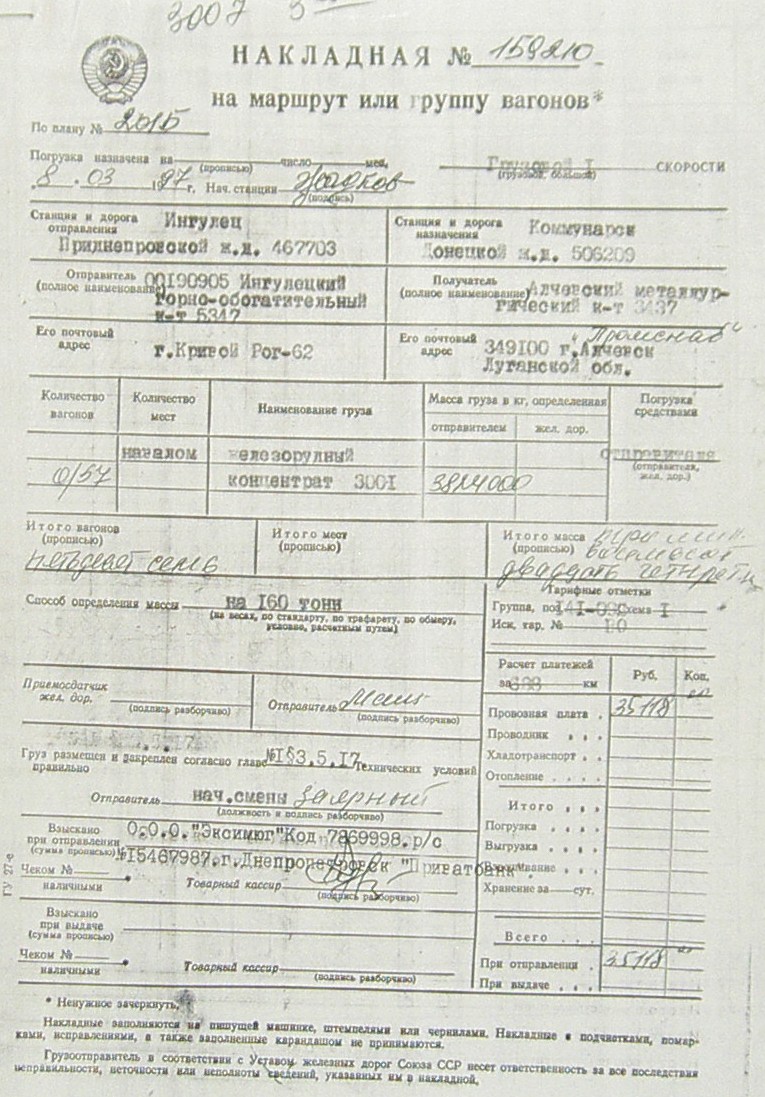 3007
НАКЛАДНАЯ № 159210
на маршрут или группу вагонов*
По плану № 2015
Погрузка назначена на число мес.
(прописью)
Грузовой I СКОРОСТИ
(грузовой, большой)
8 . 03 1997 г. Нач. станции
(подпись)
Станция и дорога отправления Ингулец
Приднепровской ж.д. 467703
Станция и дорога назначения Коммунарск
Донецкой ж.д. 506209
Отправитель (полное наименование) 00190905 Ингулецкий
горно-обогатительный
к-т 5347
Получатель (полное наименование) Алчевский металлур-
гический к-т 3437
"Промснаб"
Его почтовый адрес г.Кривой Рог-62
Его почтовый адрес 349100 г.Алчевск
Луганской обл.
Количество вагонов
Количество мест
Наименование груза
Масса груза в кг, определенная
отправителем
жел. дор.
Погрузка средствами
навалом железорудный
отправителя
(отправителя, жел. дор.)
0/57 концентрат 3001 3824000
Итого вагонов (прописью)
пятьдесят семь
Итого мест (прописью)
Итого масса (прописью) три мил.
восемьсот
двадцать четыре т
Способ определения массы на 160 тонн
(на весах, по стандарту, по трафарету, по обмеру,
условно, расчетным путем)
Тарифные отметки
Группа, поз схема I
Иск. тар. №
Расчет платежей
за км
Руб.
Коп.
Приемосдатчик жел. дор.
(подпись разборчиво)
Отправитель
(подпись разборчиво)
Провозная плата . 35118
Проводник . . .
Хладотранспорт . .
Отопление . . . .
Груз размещен и закреплен согласно главе №1§3.5.17 Технических условий
правильно
Отправитель нач.смены Заярный
(должность и подпись разборчиво)
Итого . . .
Погрузка . . . .
Выгрузка . . . .
Хранение за сут.
Взыскано при отправлении (сумма прописью)
О.О.О."Эксимюг"Код 7869998.р/с
№15467987.г.Днепропетровск "Приватбанк".
Чеком №
наличными *
Товарный кассир
(подпись разборчиво)
Взыскано при выдаче (сумма прописью)
Всего . . .
Чеком №
наличными *
Товарный кассир
(подпись разборчиво)
При отправлении . 35118
При выдаче . . .
ГУ 27-е
* Ненужное зачеркнуть.
Накладные заполняются на пишущей машинке, штемпелями или чернилами. Накладные с подчистками, помар-
ками, исправлениями, а также заполненные карандашом не принимаются.
Грузоотправитель в соответствии с Уставом железных дорог Союза ССР несет ответственность за все последствия
неправильности, неточности или неполноты сведений, указанных им в накладной.